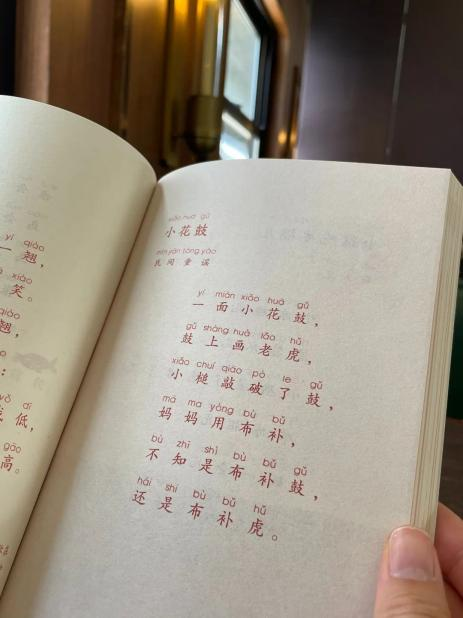 yí qiào
一翘，
xiào
笑。
qiào
翘，
dī
低，
gāo
高。
xiǎo huā gǔ
小花鼓
mín jiān tóng yáo
民间童谣
yí miàn xiǎo huā gǔ
一面小花鼓，
gǔ shàng huà lǎo hǔ
鼓上画老虎，
xiǎo chuí qiāo pò le gǔ
小槌敲破了鼓，
mā ma yòng bù bǔ
妈妈用布补，
bù zhī shì bù bǔ gǔ
不知是布补鼓，
hái shì bù bǔ hǔ
还是布补虎。